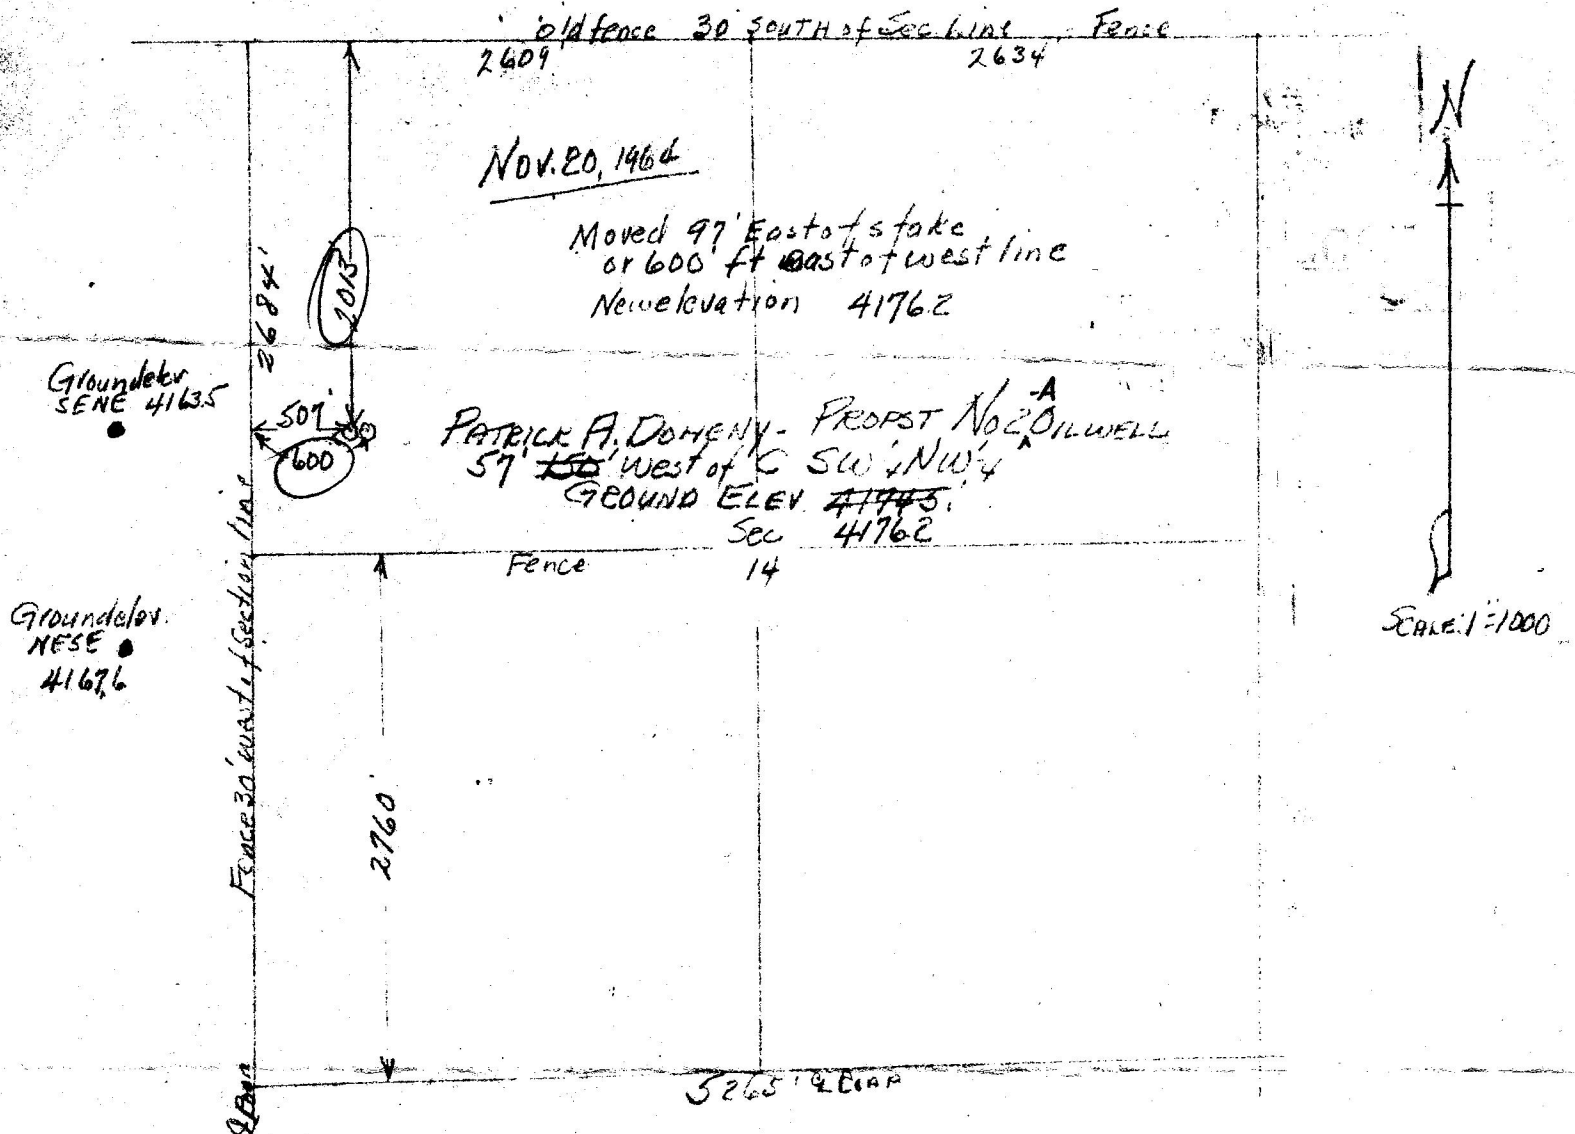 old fence 30' SOUTH of Sec Line Fence
2609 2634
N
NOV. 20, 1964
Moved 97' East of stake
or 600' ft east of west line
New elevation 4176.2
2684'
2013
Ground elev
SENE 4163.5
507'
600
PATRICK A. DOHENY - PROPST No 2-A OILWELL
57' 150' West of C SW¼NW¼
GROUND ELEV 4174.5'
Sec 4176.2
14
Fence
Ground elev.
NESE
4167.6
SCALE: 1"=1000
Fence 30' west of Section line
2760'
5265'